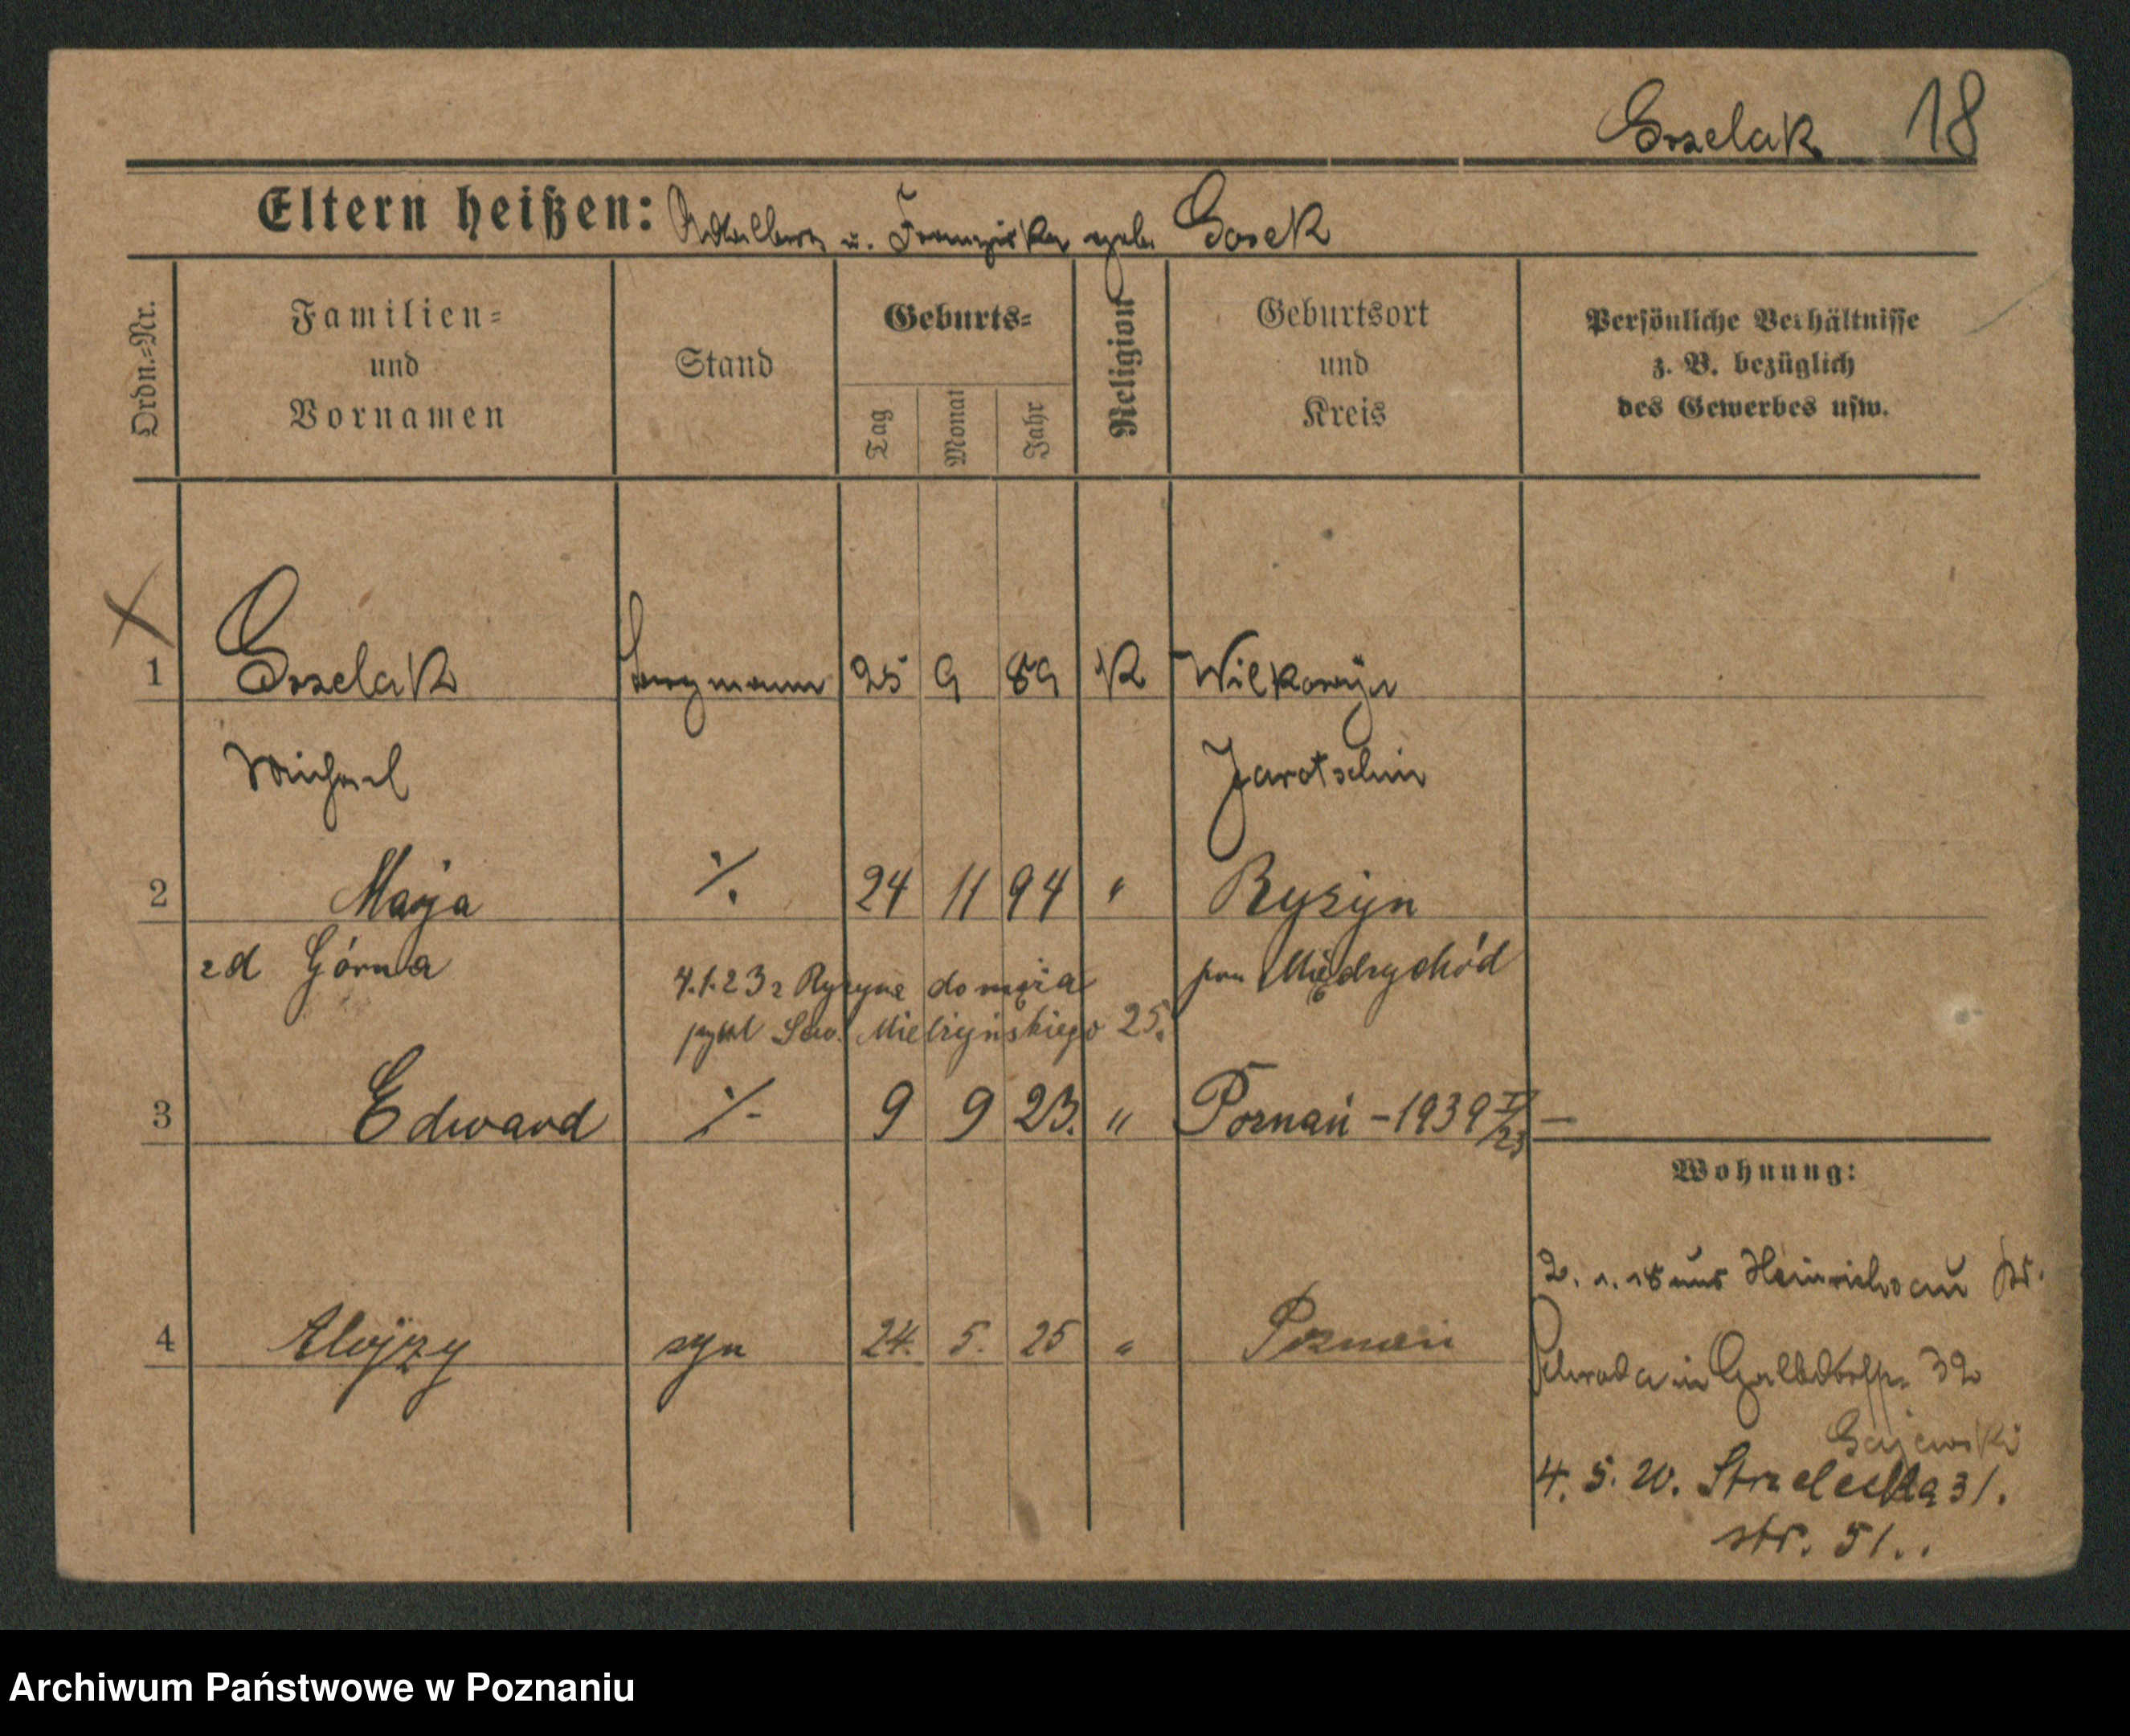 Goselak 18
Eltern heißen: Adalbert u. Franziska geb. Gosek
Ordn.=Nr.
Familien=
und
Vornamen
Stand
Geburts=
Tag
Monat
Jahr
Religion
Geburtsort
und
Kreis
Persönliche Verhältnisse
z. B. bezüglich
des Gewerbes usw.
1 25 9 89 K Wilkowyja
Michael Jarotschin
2 Marja ·/. 24 11 94 " Ryżyn
zd Górna pow Międzychód
4.1.23 z Ryżyna do męża
Sew. Mielżyńskiego 25.
3 Edward ·/- 9 9 23. " Poznań - 1939 —
Wohnung:
2. 1. 18 aus Heinrichsau Kr.
4 Alojzy syn 24. 5. 25 " Poznań
Schroda in 32
Gajewski
4. 5. 20. Strzelecka 31.
str. 51..
Archiwum Państwowe w Poznaniu